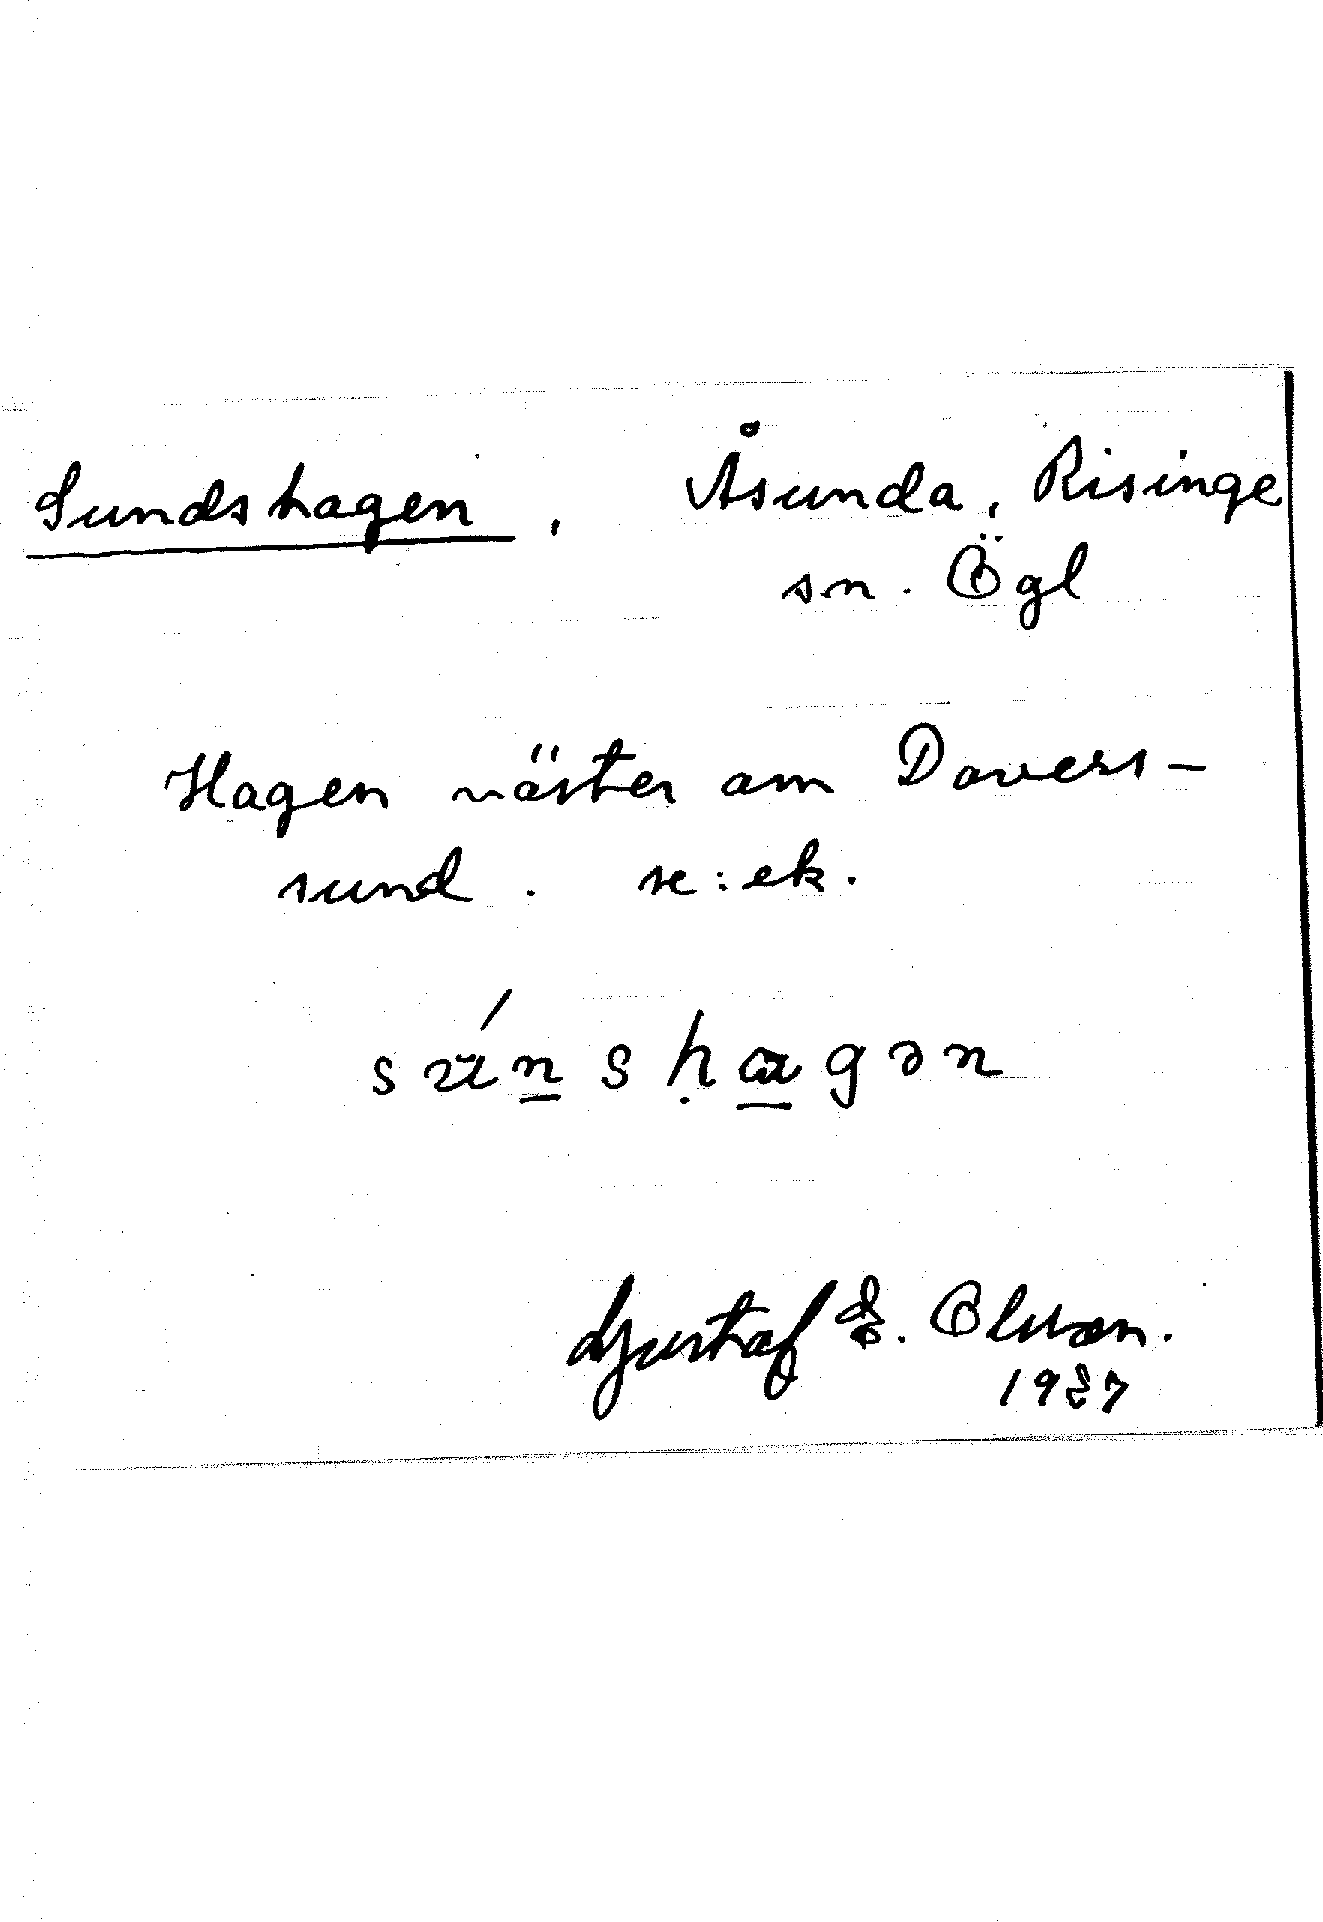 Sundshagen, Åsunda, Risinge
sn. Ögl
Hagen väster om Davers-
sund. se: ek.
súnshagən
Gustaf E. Olsson.
1937